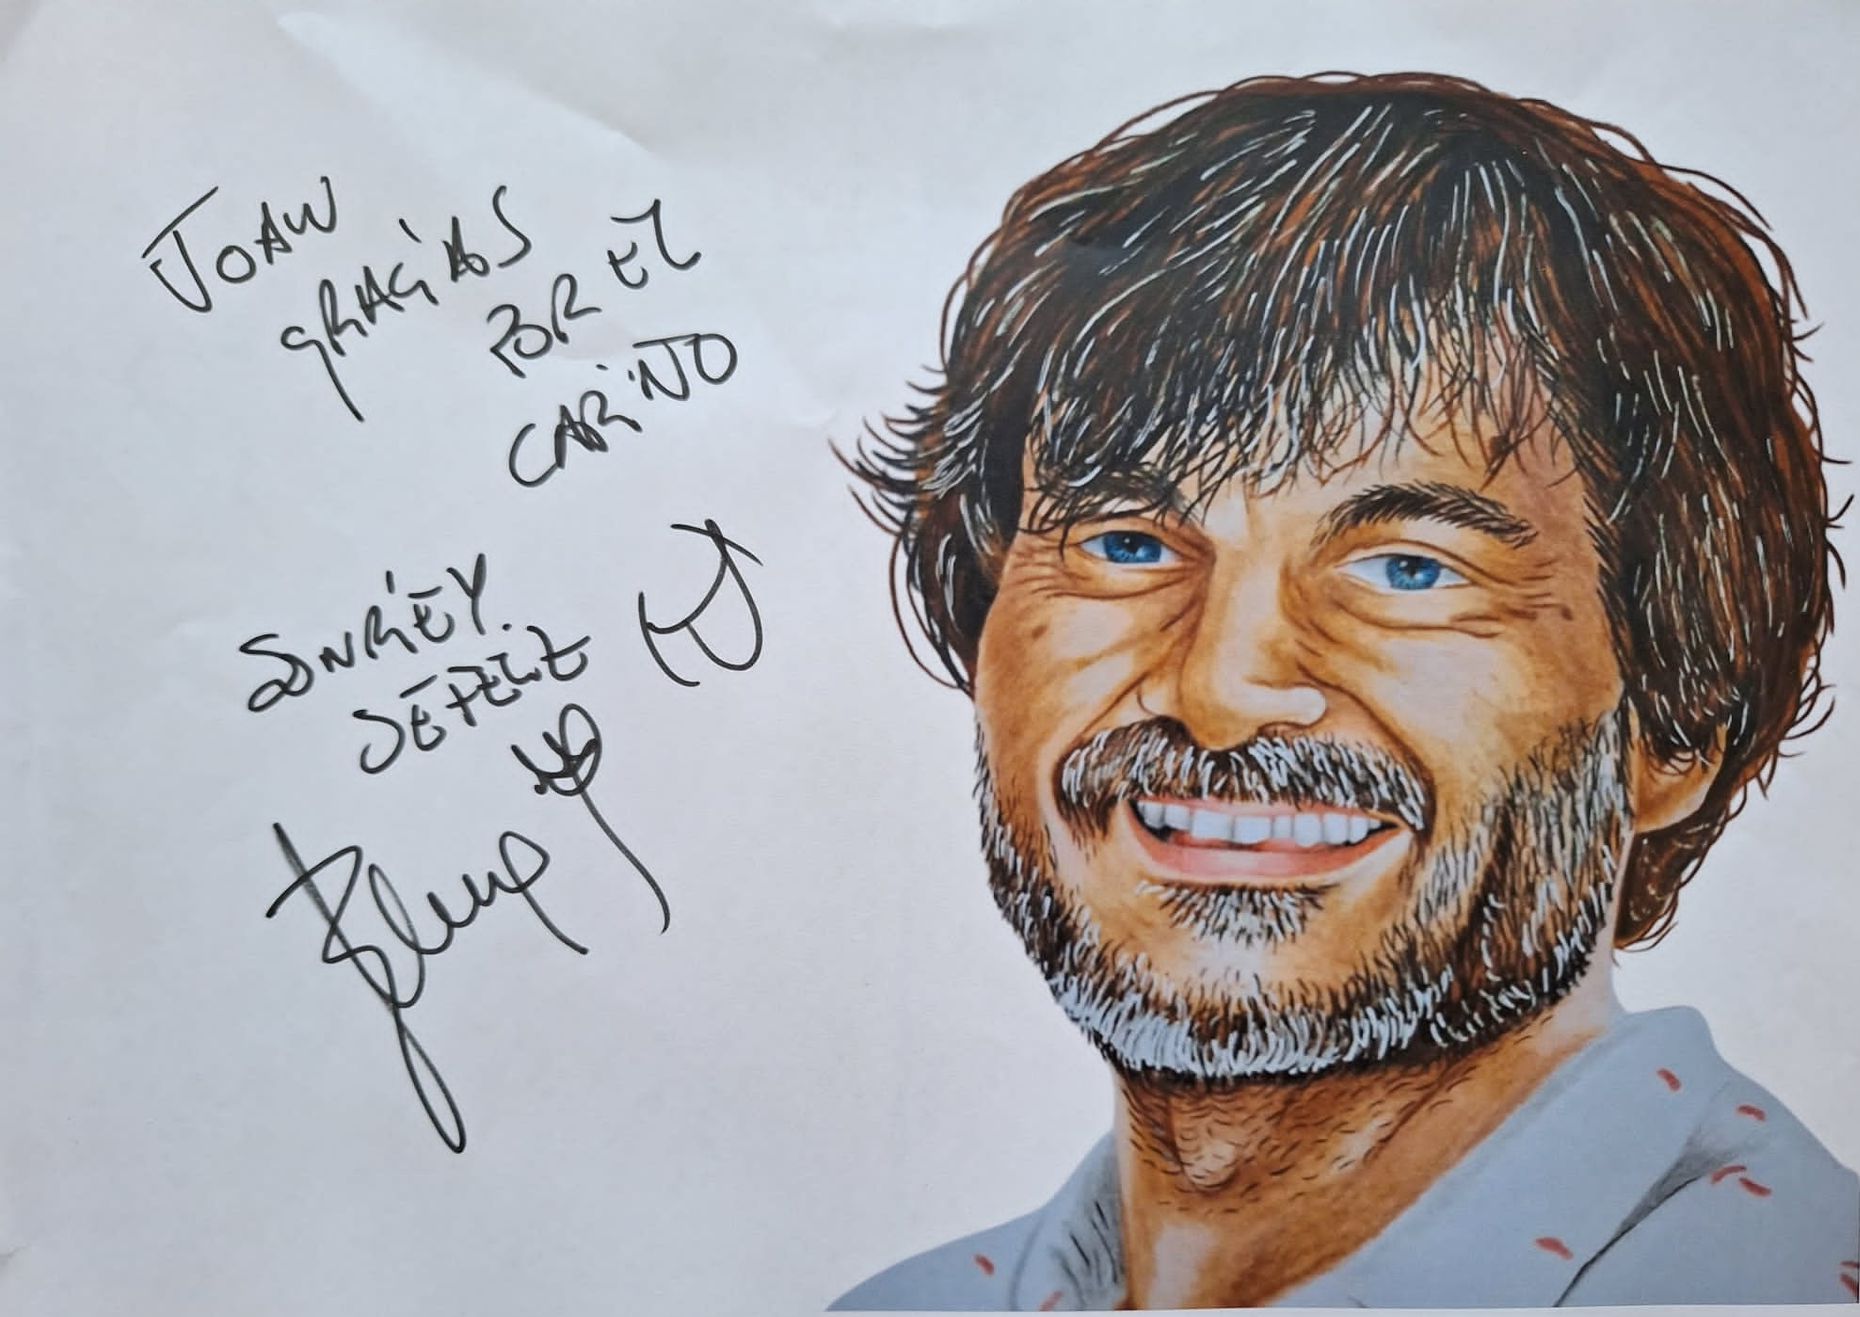 JOAN
GRACIAS
POR EL
CARIÑO
SONRÍE Y
SÉ FELIZ